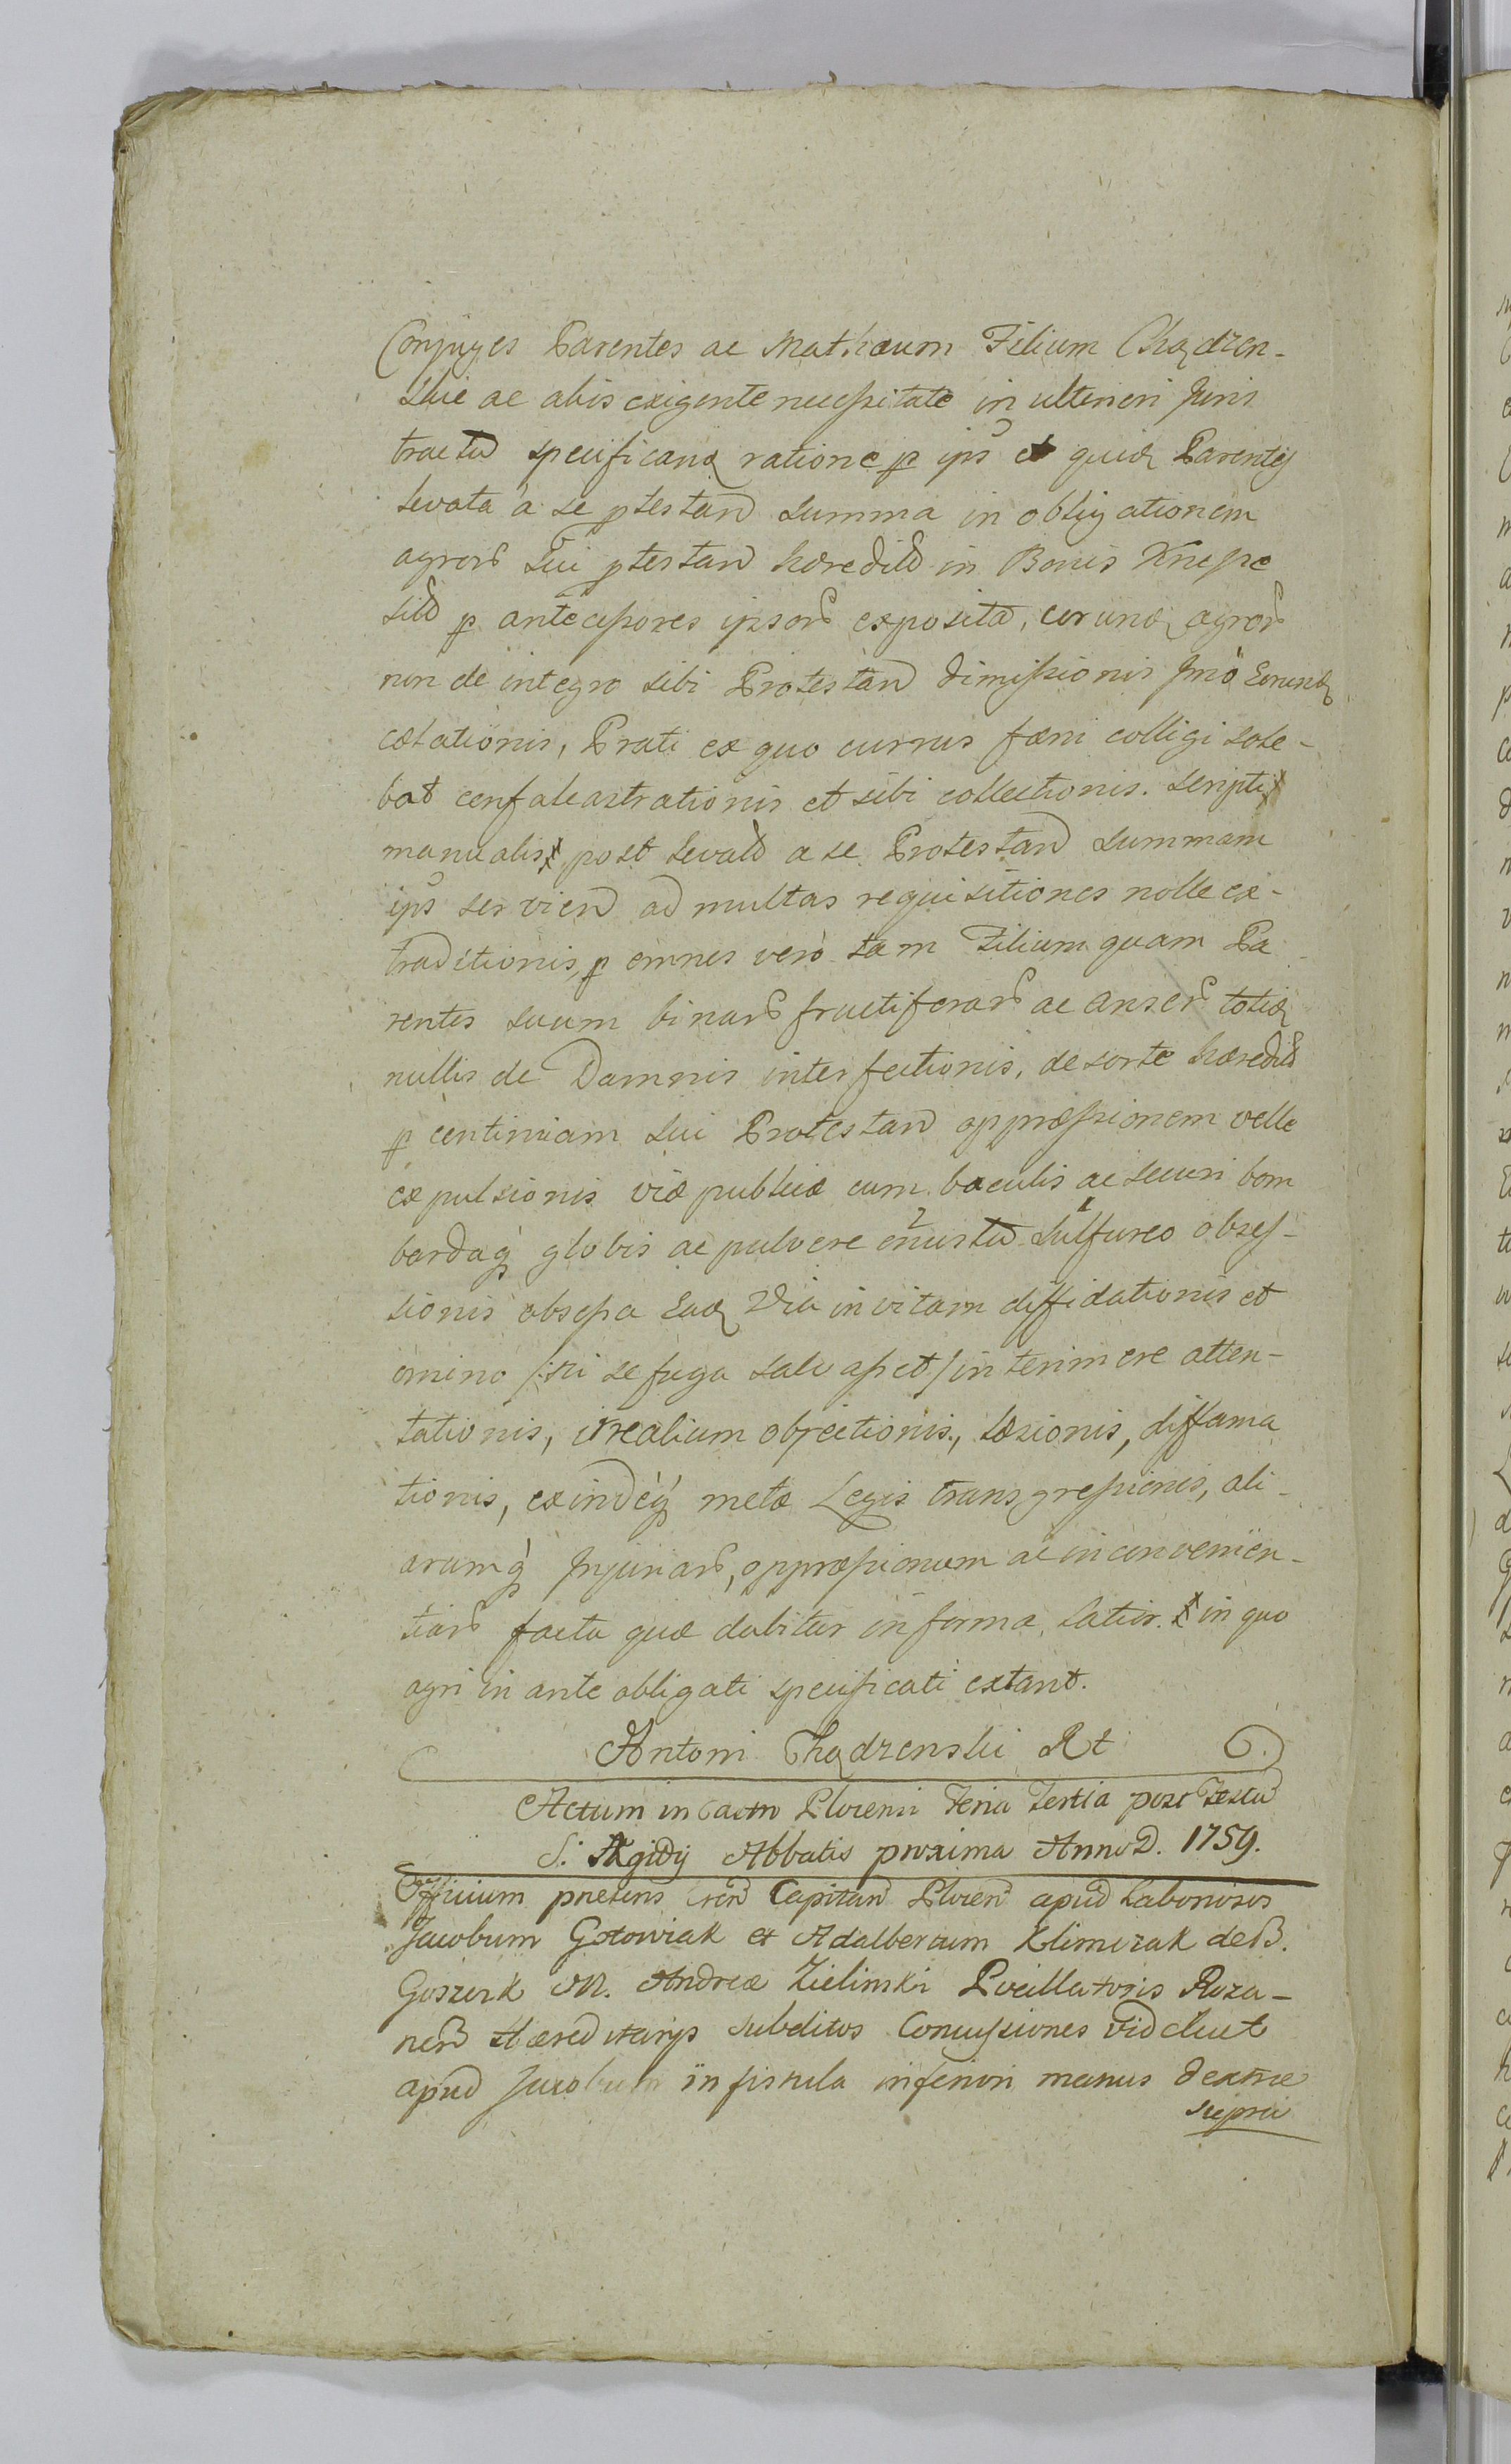 Conjuges Parentes ac Mathæum Filium Chądzen-
skie ac aliis exigente necessitate in ulteriori Juris
tractu specificand ratione p ips et quid Parentes
levata a se ptestan summa in obligationem
agror sui ptestan hæredit in Bonis Knipe
sit p antecessores ipsor exposita, eorund agror
non de integro sibi Protestan dimissionis Imo Eorund
cætationis, Prati ex quo currus fæni colligi sole-
bat confalcastrationis et sibi collectionis. scripti
manualis post levat a se Protestan summam
ips servien ad multas requisitiones nolle ex-
traditionis, p omnes vero tam Filium quam Pa
rentes suum binar fructiferar ac anser totid
nullis de Damnis interfectionis, de sorte hæredit
p continuam sui Protestan oppræssionem velle
expulsionis viæ publicæ cum baculis ac securi bom
bardaq globis ac pulvere onusta sulfureo obses-
sionis obsessa Ead Via in vitam diffidationis et
omino /: ni se fuga salvasset / interimere atten-
tationis, irrealium objectionis, læsionis, diffama
tionis, exindeq metæ Legis transgressionis, ali-
arumq Injuriar, oppræssionum ac inconvenien-
tiar facta quæ dabitur in forma latior. in quo
agri in ante obligati specificati extant.
Antoni Chądzenski Rt
Actum in Castro Plocensi Feria Tertia post Festu
S. Ægidij Abbatis proxima Anno D. 1759.
Officium præsens Cren Capitan Plocen apud Laboriosos
Jacobum Gotowiak et Adalbertum Klimczak de B.
Goszczk M. Andreæ Zielinski Pocillatoris Roza-
nen Hæreditarijs subditos Concussiones vid cluet
apud Jacobum in fistula inferiori manus dextræ
supra